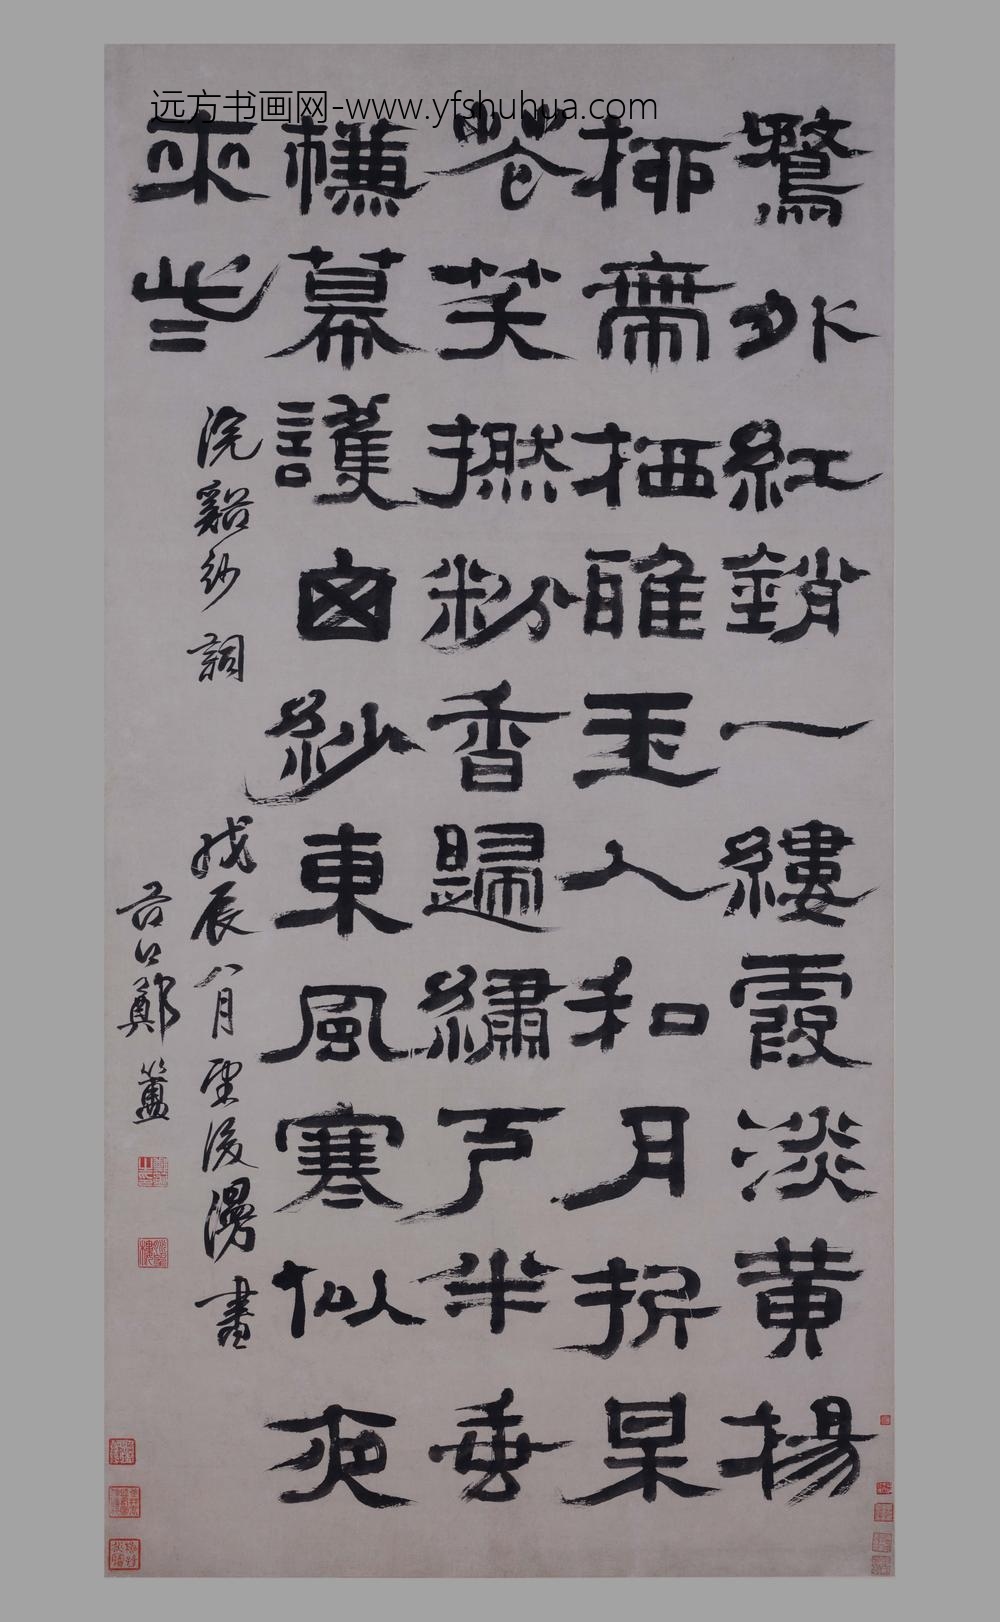 远方书画网-www.yfshuhua.com
鶩外紅銷一縷霞淡黃揚
桺帶栖鴉玉人和月折某
笑撚粉香歸繡戶半垂
幕護囪紗東風寒似夜
來些
浣谿紗詞 戊辰八月望後漫書
谷口鄭簠